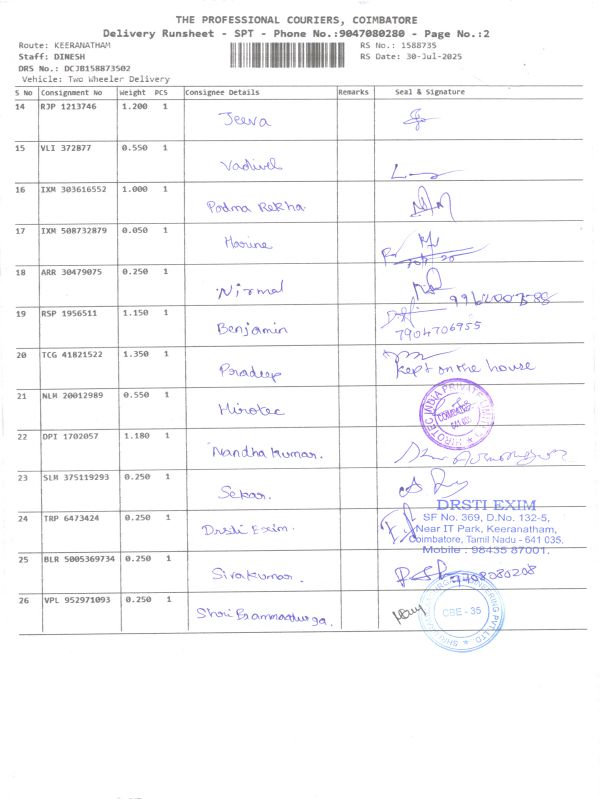 THE PROFESSIONAL COURIERS, COIMBATORE
Delivery Runsheet - SPT - Phone No.:9047080280 - Page No.:2
Route: KEERANATHAM RS No.: 1588735
Staff: DINESH RS Date: 30-Jul-2025
DRS No.: DCJB158873502
Vehicle: Two Wheeler Delivery
S No Consignment No Weight PCS Consignee Details Remarks Seal & Signature
14 RJP 1213746 1.200 1 Jeeva
15 VLI 372877 0.550 1 Vadivel
16 IXM 303616552 1.000 1 Padma Rekha.
17 IXM 508732879 0.050 1 Harine
18 ARR 30479075 0.250 1 Nirmal
19 RSP 1956511 1.150 1 Benjamin 7904706955
20 TCG 41821522 1.350 1 Pradeep kept on the house
21 NLM 20012989 0.550 1 Hirotec HIROTEC INDIA PRIVATE LIMITED COIMBATORE
22 DPI 1702057 1.180 1 Nandha Kumar.
23 SLM 375119293 0.250 1 Sekar.
24 TRP 6473424 0.250 1 Drsti Exim.
DRSTI EXIM
SF No. 369, D.No. 132-5,
Near IT Park, Keeranatham,
Coimbatore, Tamil Nadu - 641 035.
Mobile : 98435 87001.
25 BLR 5005369734 0.250 1 Sivakumar. 9708080208
26 VPL 952971093 0.250 1 CBE - 35